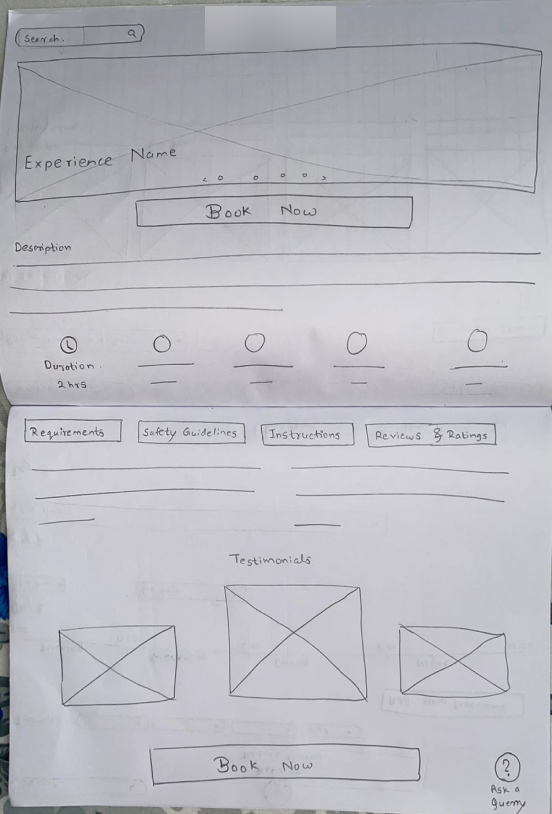 Search.
Experience Name
Book Now
Description
Duration.
2 hrs
Requirements
Safety Guidelines
Instructions
Reviews & Ratings
Testimonials
Book Now
?
Ask a
query